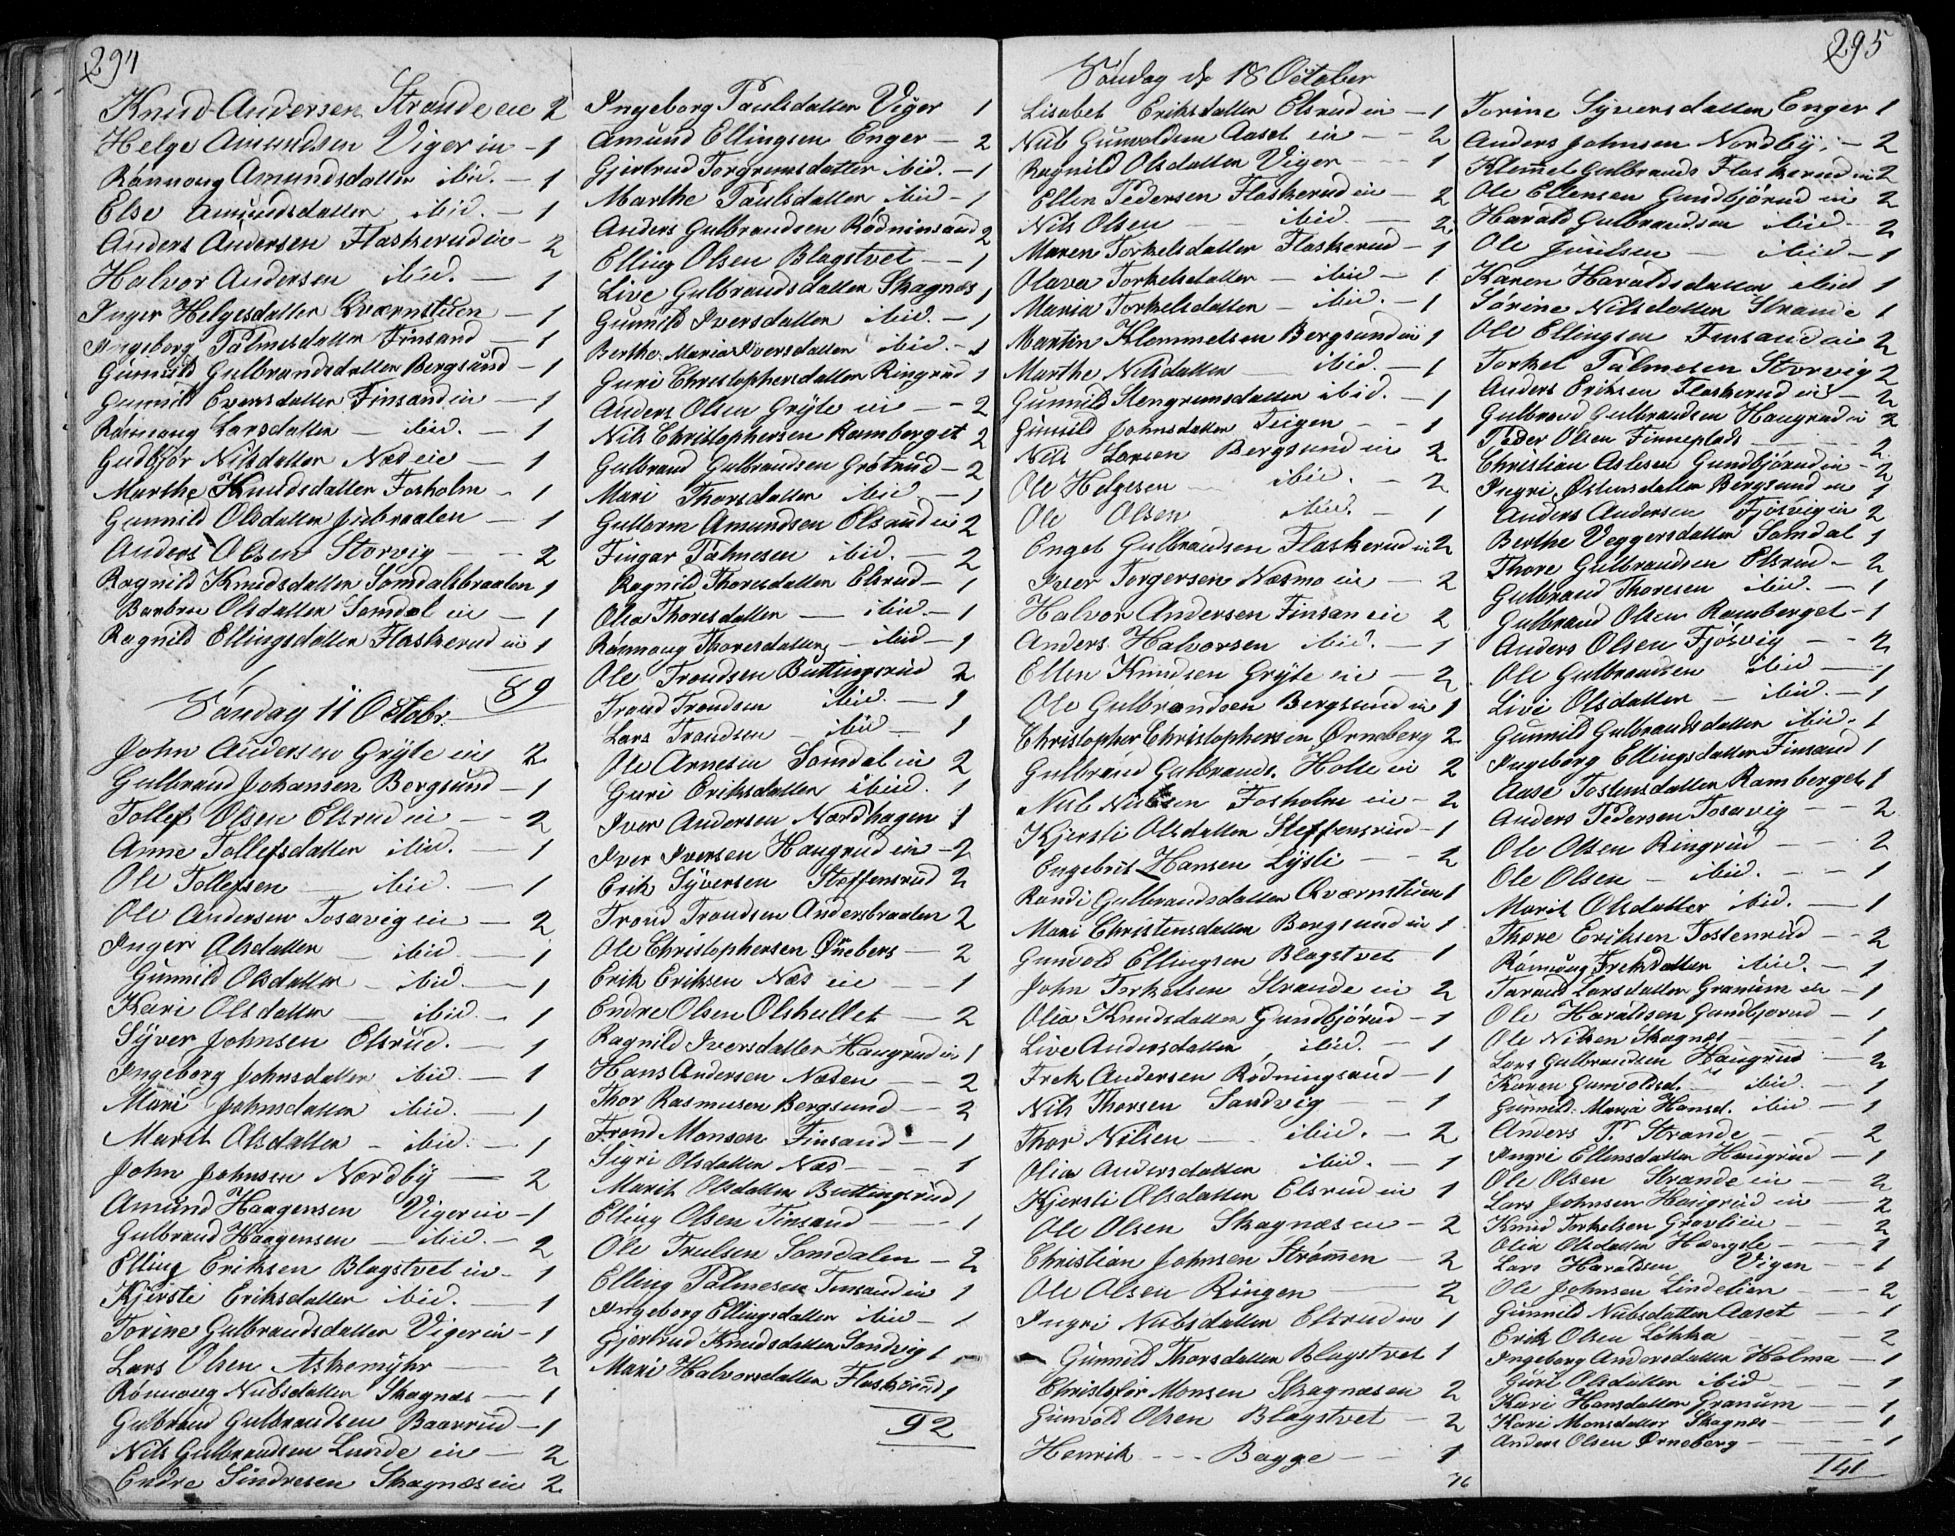 294
Knud Andersen Strande eie 2
Helge Amundsen Viger eie - 1
Rönnoug Amundsdatter ibid. - 1
Else Amundsdatter ibid. - 1
Anders Andersen Flaskerud eie - 2
Halvor Andersen ibid. - 1
Inger Helgesdatter Qværnstuen - 1
Ingeborg Palmesdatter Finsand - 1
Gunnild Gulbrandsdatter Bergsund - 1
Gunnild Evensdatter Finsand eie - 1
Rönnoug Larsdatter - ibid. - 1
Gudbjör Nilsdatter Næs eie - 1
Marthe Knudsdatter Fosholm - 1
Gunnild Olsdatter Juvbraaten - 1
Anders Olsen Storvig - - 2
Ragnild Knudsdatter Somdalsbraaten 1
Barbro Olsdatter Somdal eie - 1
Ragnild Ellingsdatter Flaskerud eie 1
89
Søndag 11 Octobr.
John Andersen Gryte eie 2
Gulbrand Johansen Bergsund - 1
Tollef Olsen Elsrud eie - 2
Anne Tollefsdatter ibid. - 1
Ole Tollefsen - ibid. - 1
Ole Andersen Tosavig eie - 2
Inger Olsdatter - ibid - 1
Gunnild Olsdatter - ibid. - 1
Kari Olsdatter - ibid. - 1
Syver Johnsen Elsrud. - 1
Ingeborg Johnsdatter ibid. - 1
Mari Johnsdatter ibid. - 1
Marit Olsdatter - ibid. - 1
John Johnsen Nordby - 2
Amund Haagensen Viger eie - 1
Gulbrand Haagensen - ibid. - 2
Elling Eriksen Blagstvet eie - 1
Kjerste Eriksdatter ibid. - 1
Torine Gulbrandsdatter Viger eie - 1
Lars Olsen Askemyhr - 2
Rönnoug Nubsdatter Skagnæs - 1
Gulbrand Gulbrandsen Baarrud - 1
Nils Gulbrandsen Lunde eie - 2
Endre Sindresen Skagnæs eie 2
Ingeborg Paulsdatter Viger 1
Amund Ellingsen Enger - 2
Gjertrud Torgrimsdatter ibid. - 1
Marthe Paulsdatter ibid - 1
Anders Gulbrandsen Rödninsand 2
Elling Olsen Blagstvet - - 1
Live Gulbrandsdatter Skagnæs 1
Gunnild Iversdatter ibid. - 1
Berthe Maria Iversdatter ibid. - 1
Guri Christophersdatter Ringrud 1
Anders Olsen Gryte eie - - 2
Nils Christophersen Ramberget 2
Gulbrand Gulbrandsen Grøtrud - 2
Mari Thorsdatter ibid - 1
Guttorm Amundsen Elsrud eie 2
Fingar Palmesen ibid. - 2
Ragnild Thoresdatter Elsrud - 1
Olia Thoresdatter - ibid - 1
Rönnoug Thoresdatter - ibid - 1
Ole Trondsen Buttingsrud 2
Trond Trondsen ibid. - 1
Lars Trondsen - ibid - 1
Ole Arnesen Somdal eie 2
Guri Eriksdatter ibid. 1
Iver Andersen Nordhagen 1
Iver Iversen Haugrud eie - 2
Erik Syversen Steffensrud 2
Trond Trondsen Andersbraaten 2
Ole Christophersen Ørneberg - 2
Erik Eriksen Næs eie - 1
Endre Olsen Olshullet - 2
Ragnild Iversdatter Haugrud eie 1
Hans Andersen Næsen - - 2
Thor Rasmusen Bergsund - - 2
Trond Monsen Finsand - - 1
Sigri Olsdatter Næs - - - 1
Marit Olsdatter Buttingsrud 1
Elling Olsen Finsand - - 1
Ole Trulsen Somdalen - 2
Elling Palmesen Finsand eie 1
Ingeborg Ellingsdatter ibid - 1
Gjertrud Knudsdatter Sandvig 1
Mari Halvorsdatter Flaskerud 1
92
295
Søndag d. 18 October
Lisabet Eriksdatter Elsrud eie - 1
Nub Gunvoldsen Aaset eie - - 2
Ragnild Olsdatter Viger - - 1
Ellen Pedersen Flaskerud eie - 2
Nils Olsen - ibid. - 2
Maren Torkelsdatter Flaskerud - 1
Olava Torkelsdatter - ibid - 1
Maria Torkelsdatter - ibid. - 1
Martin Klemmetsen Bergsund eie 1
Marthe Nilsdatter - ibid. - 1
Gunnild Stengrimsdatter ibid. - 1
Gunnild Johnsdatter Teigen - - 1
Nils Larsen Bergsund eie 2
Ole Helgesen ibid. - 2
Ole Olsen ibid. - 1
Engeb Gulbrandsen Flaskerud eie 2
Peter Torgersen Næsmo eie - 2
Halvor Andersen Finsan eie 2
Anders Halvorsen ibid. - 1
Ellen Knudsen Gryte eie - 2
Ole Gulbrandsen Bergsund eie 1
Christopher Christophersen Ørneberg 2
Gulbrand Gulbrands. Holte eie 2
Nub Nubsen Fosholm eie - 2
Kjersti Olsdatter Steffensrud - 1
Engebrit Hansen Lysli - - 2
Randi Gulbrandsdatter Qværnstuen 1
Mari Christensdatter Bergsund eie 1
Gunvold Ellingsen Blagstvet 1
John Torkelsen Strande eie 2
Olia Knudsdatter Gundbjørud - 1
Live Andersdatter, ibid. - 1
Frek Andersen Rødningsand - 1
Nils Thorsen Sandvig - - 1
Thor Nilsen - ibid. - 2
Olia Andersdatter ibid. - 1
Kjersti Olsdatter Elsrud eie 1
Ole Olsen Skagnæs eie - 2
Christian Johnsen Strømmen - 2
Ole Olsen Ringen - 2
Ingri Nubsdatter Elsrud eie 1
Gunnild Thorsdatter Blagstvet 1
Christofor Monsen Skagnæs eie 2
Gunvold Olsen Blagstvet - 2
Henrik - - - Bagge - - 1
76
Torine Syversdatter Enger 1
Anders Johnsen Nordby - 2
Klemmet Gulbrands Flaskerud eie 2
Ole Ellensen Gundbjørud eie 2
Harald Gulbrandsen ibid - 2
Ole Juulsen - ibid - 1
Karen Haraldsdatter ibid 1
Sørine Nilsdatter Strande 1
Ole Ellingsen Finsand eie 2
Torkel Palmesen Storvig 2
Anders Eriksen Flaskerud eie - 2
Gulbrand Gulbrandsen Haugrud eie 2
Peder Olsen Finneplads - - 2
Christian Aslesen Gundbjørud eie - 2
Ingri Østensdatter Bergsund eie 1
Anders Andersen Fjösvig eie 2
Berthe Veggersdatter Somdal 1
Thore Gulbrandsen Elsrud - 2
Gulbrand Thoresen ibid. - 1
Gulbrand Olsen Ramberget - 1
Anders Olsen Fjösvig - - 2
Ole Gulbrandsen ibid - 1
Live Olsdatter - ibid. - 1
Gunnild Gulbrandsdatter ibid. - 1
Ingeborg Ellingsdatter Finsand 1
Aase Tostensdatter Ramberget 1
Anders Pedersen Tosavig - - 2
Ole Olsen Ringrud - - 2
Ole Olsen - ibid. - - 1
Marit Olsdatter ibid. - 1
Thore Eriksen Tostenrud - - 2
Rönnoug Freksdatter ibid. - 1
Tarand Larsdatter Granum eie - 1
Ole Haraldsen Gundbjørud - 1
Ole Nilsen Skagnæs - - 1
Lars Gulbrandsen Haugrud - 2
Karen Gunvoldsd. - ibid. - 1
Gunnild Maria Hansd. ibid - 1
Anders P. Strande - - 2
Ingri Ellensdatter Haugrud - 1
Ole Olsen Strande eie - 2
Lars Johnsen Haugrud eie 2
Knud Torkelsen Gravli eie 2
Olia Olsdatter Hængsle - - 1
Lars Haraldsen Vigen - - 1
Ole Johnsen Lindelien - - 2
Gunnild Nubsdatter Aaset - - 1
Erik Olsen Løkka - - - 2
Ingeborg Andersdatter Holma - 1
Guri Olsdatter ibid - - 1
Kari Hansdatter Granum - - 1
Kari Monsdatter Skagnæs - - 1
Anders Olsen Ørneberg - - - 1
141